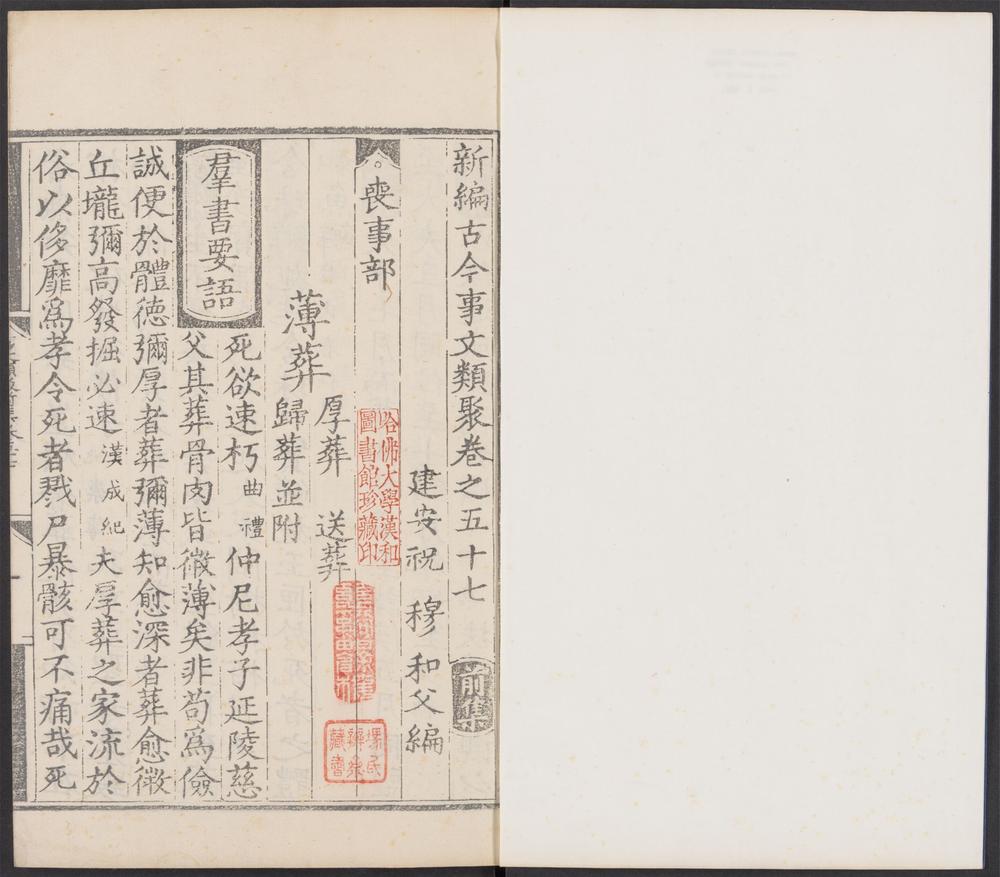 新編古今事文類聚卷之五十七
前集
建安祝 穆 和父編
喪事部
薄葬
厚葬 送葬
歸葬並附
羣書要語
死欲速朽曲禮仲尼孝子延陵慈
父其葬骨肉皆微薄矣非苟爲儉
誠便於體德彌厚者葬彌薄知愈深者葬愈微
丘壠彌高發掘必速漢成紀夫厚葬之家流於
俗以侈靡爲孝令死者戮尸暴骸可不痛哉死
哈佛大學漢和
圖書館珍藏印